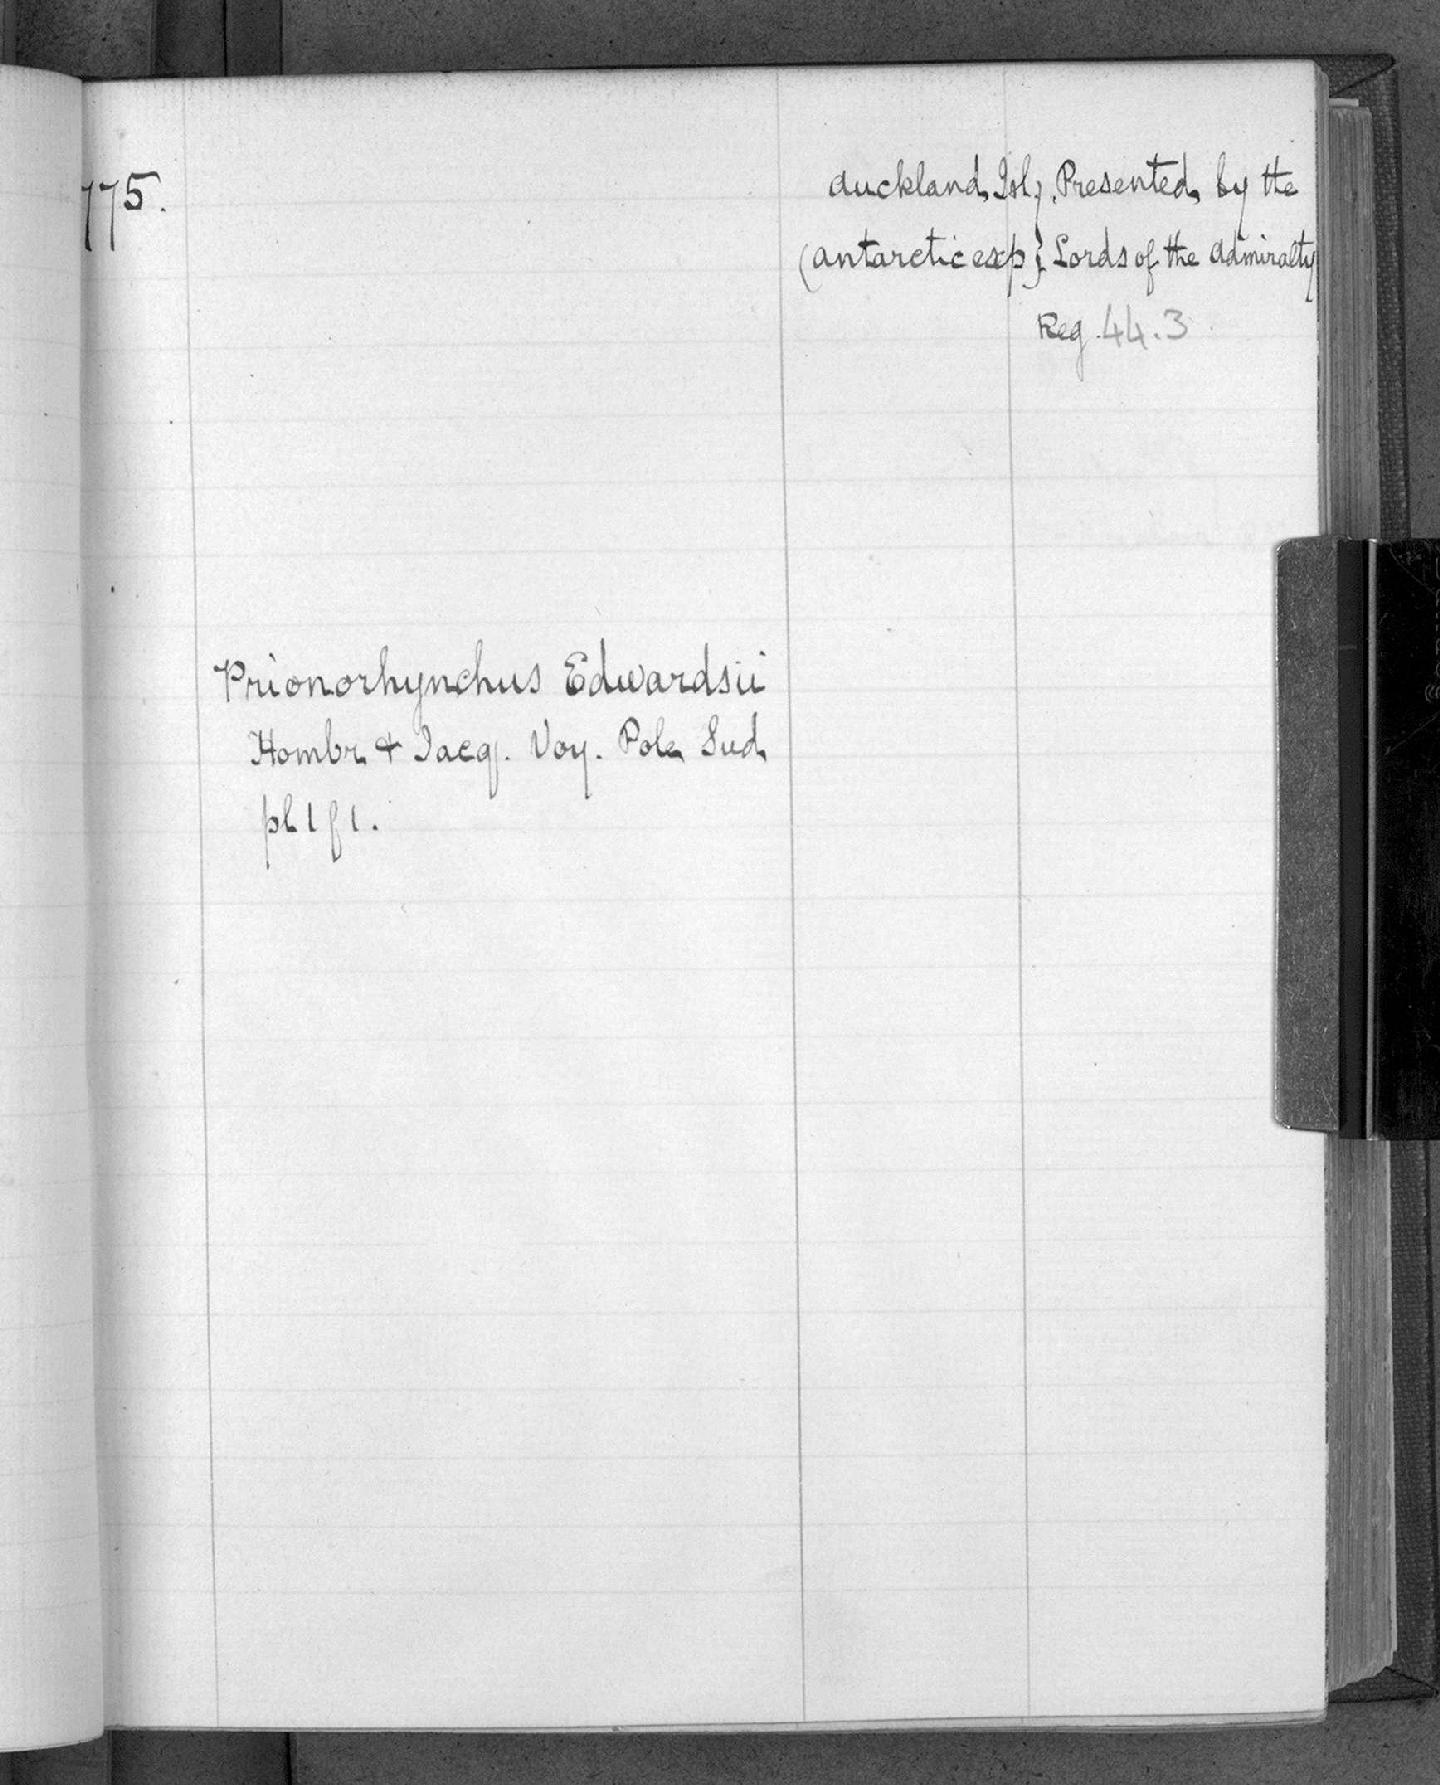 775.
Auckland Isl{y}. Presented by the
(Antarctic exp} Lords of the Admiralty
Reg. 44.3
Prionorhynchus Edwardsii
Hombr & Jacq. Voy. Pole Sud
pl 1 f 1.